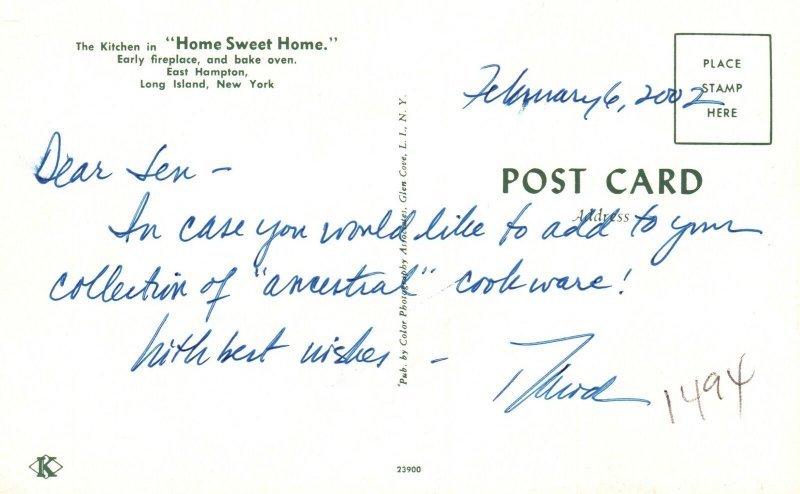 The Kitchen in "Home Sweet Home."
Early fireplace, and bake oven.
East Hampton,
Long Island, New York
February 6, 2002
PLACE
STAMP
HERE
Dear Jen –
POST CARD
Address
In case you would like to add to your
collection of "ancestral" cookware!
With best wishes –
David
1494
Pub. by Color Photography Associates, Glen Cove, L. I., N. Y.
K
23900